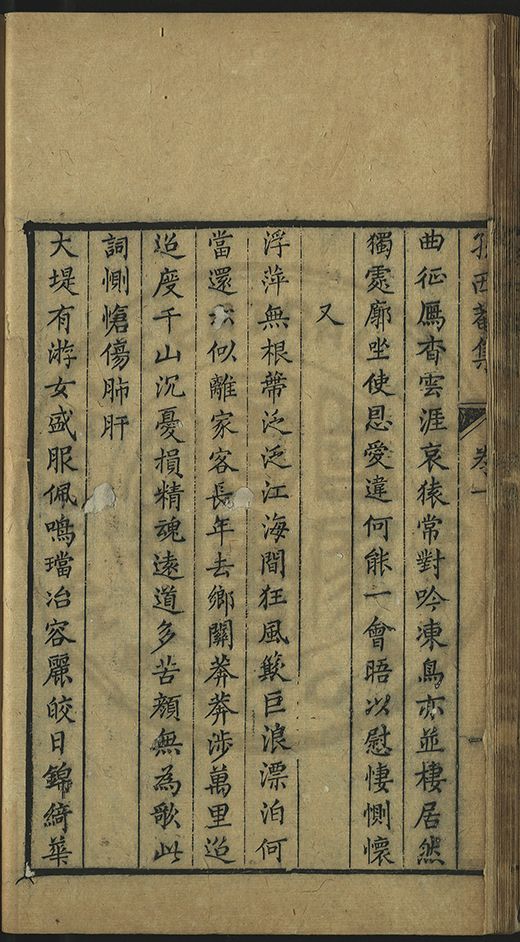 西菴集 卷一 一
曲征鴈杳雲涯哀猿常對吟凍鳥亦並棲居然
獨處廓坐使恩愛違何能一會晤以慰悽惻懷
又
浮萍無根蔕泛泛江海間狂風歘巨浪漂泊何
當還似離家客長年去鄉關莽莽涉萬里迢
迢度千山沉憂損精魂遠道多苦顏無為歌此
詞惻愴傷肺肝
大堤有游女盛服佩鳴璫冶容麗皎日錦綺華